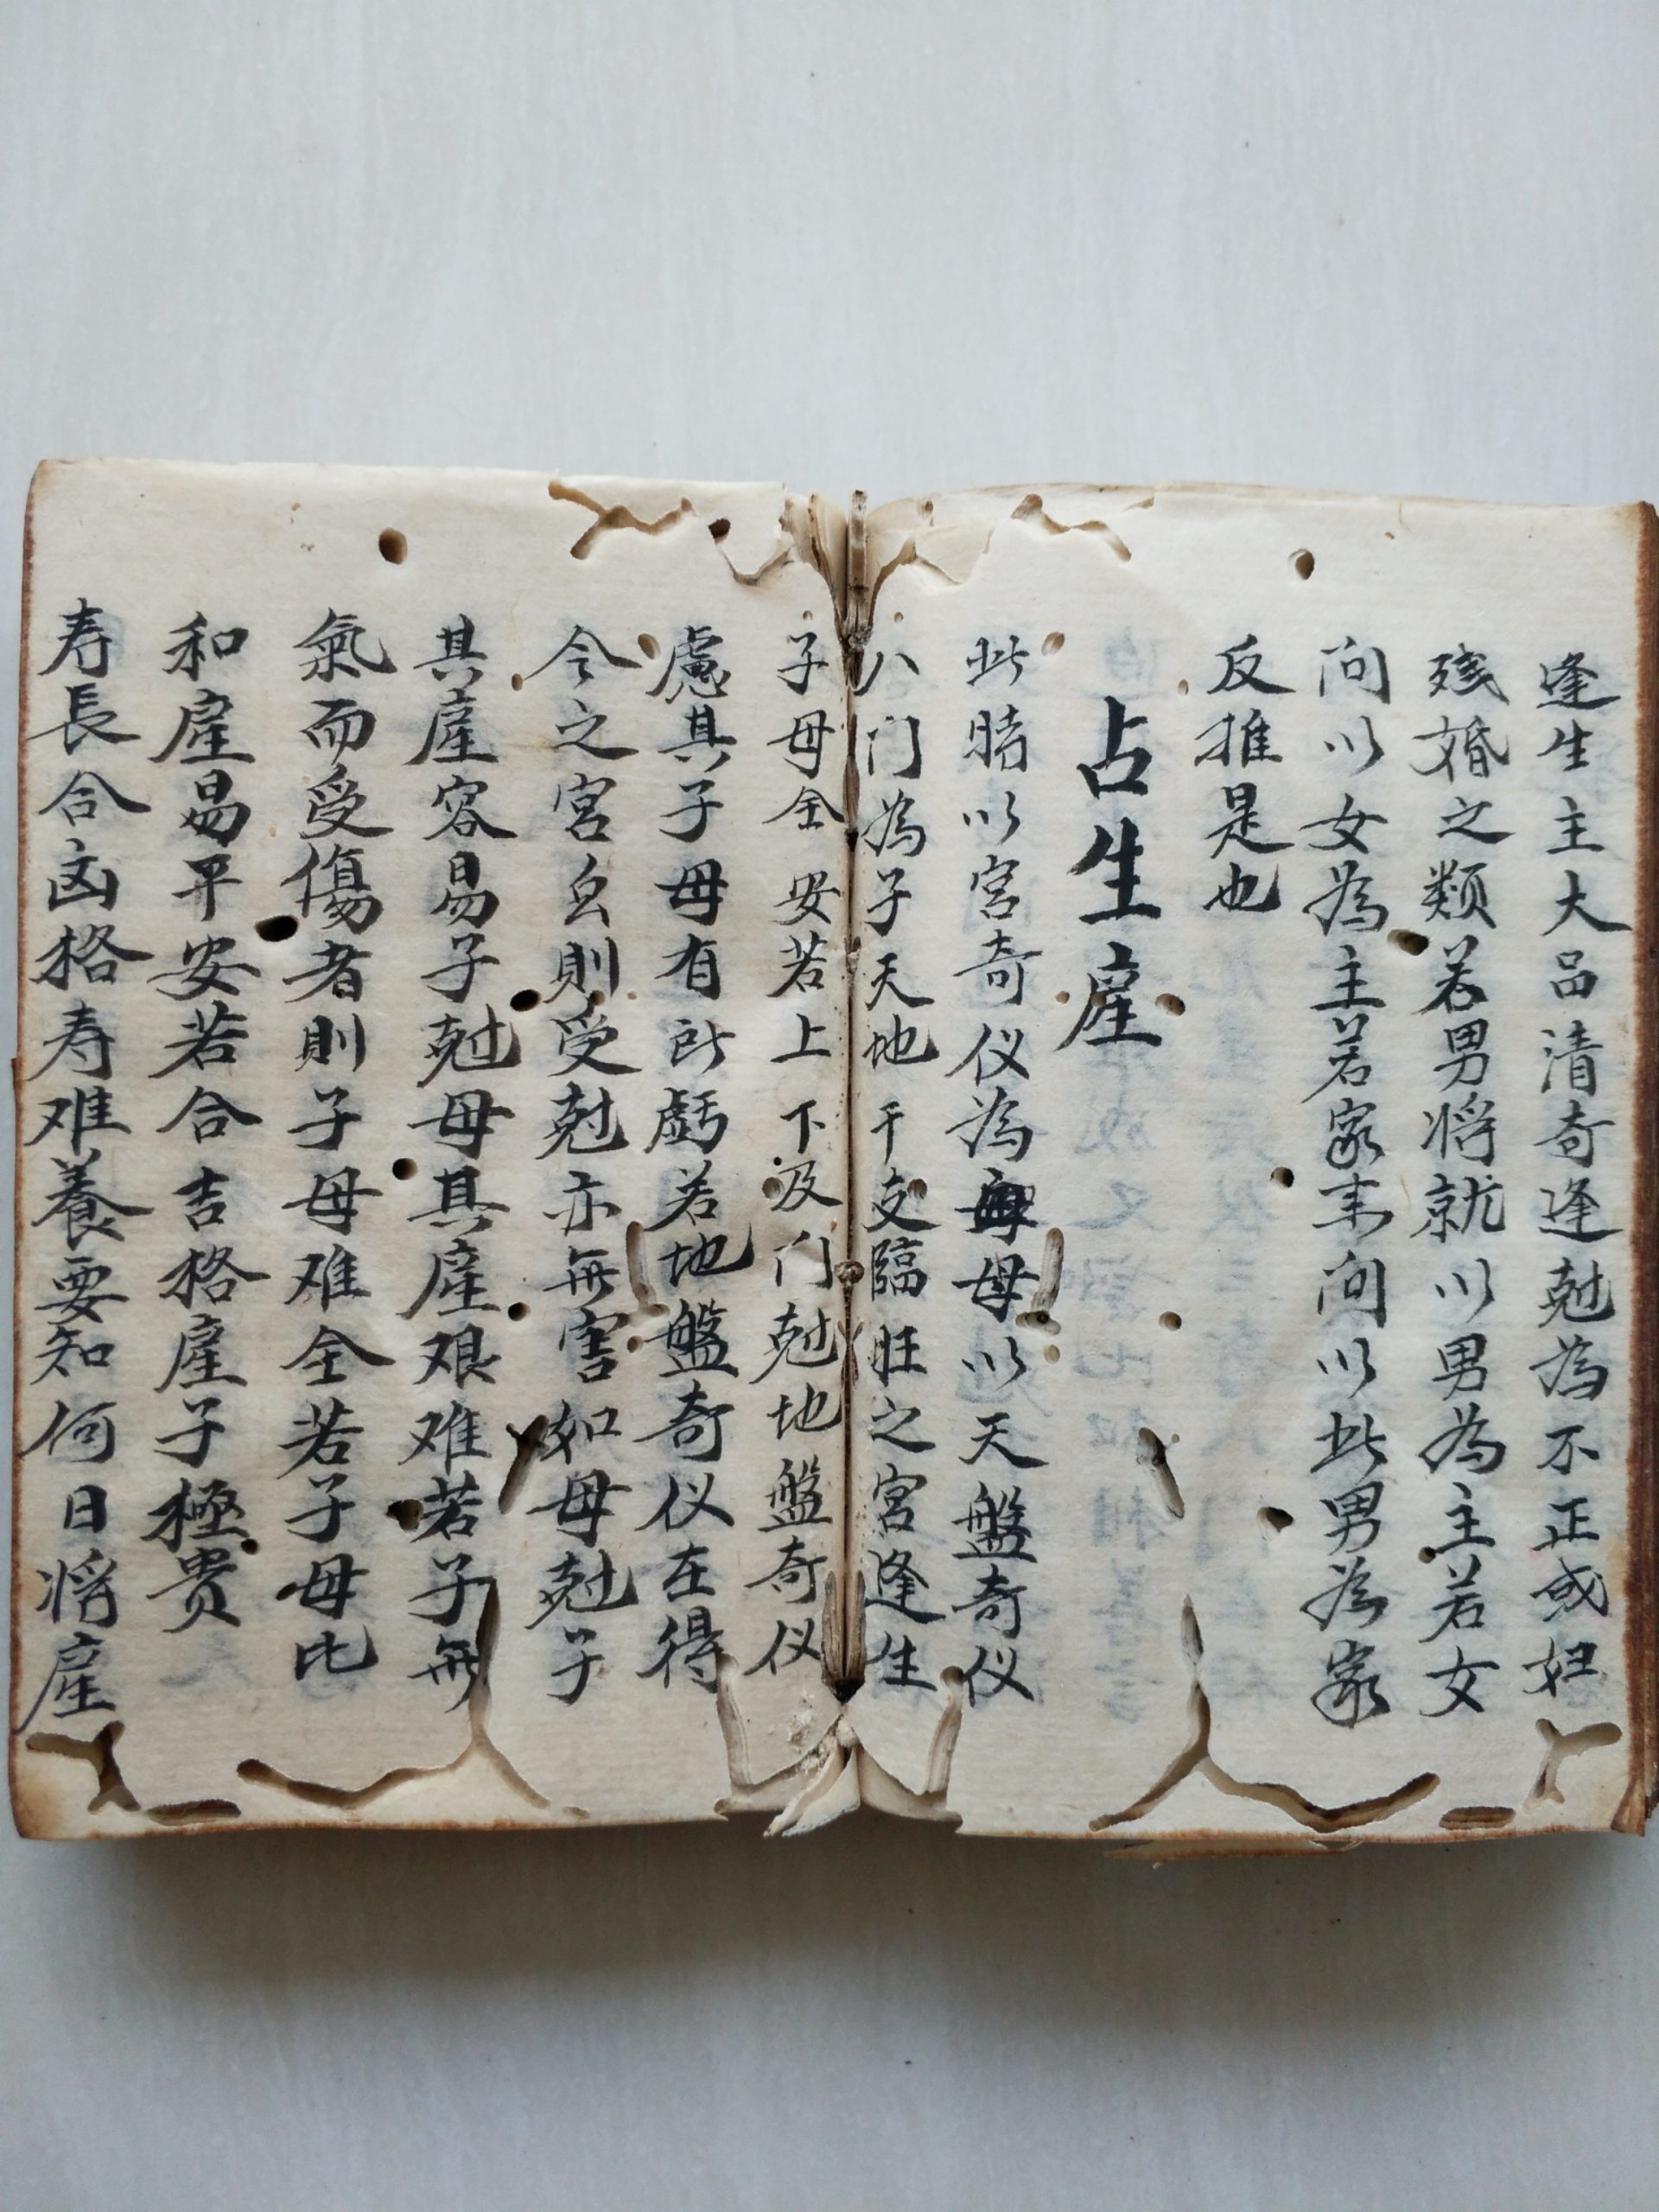 逢生主大品清奇逢尅為不正或妇
残婚之類若男将就以男為主若女
问以女為主若家来问以此男為家
反推是也
占生産
此時以宮奇仪為母以天盤奇仪
八门為子天地干支臨旺之宮逢生
子母全安若上下及门尅地盤奇仪
慮其子母有所虧若地盤奇仪在得
令之宮名則受尅亦無害如母尅子
其産容易子尅母其産艰难若子無
氣而受傷者則子母难全若子母比
和産易平安若合吉格産子極贵
寿長合凶格寿难養要知何日将産